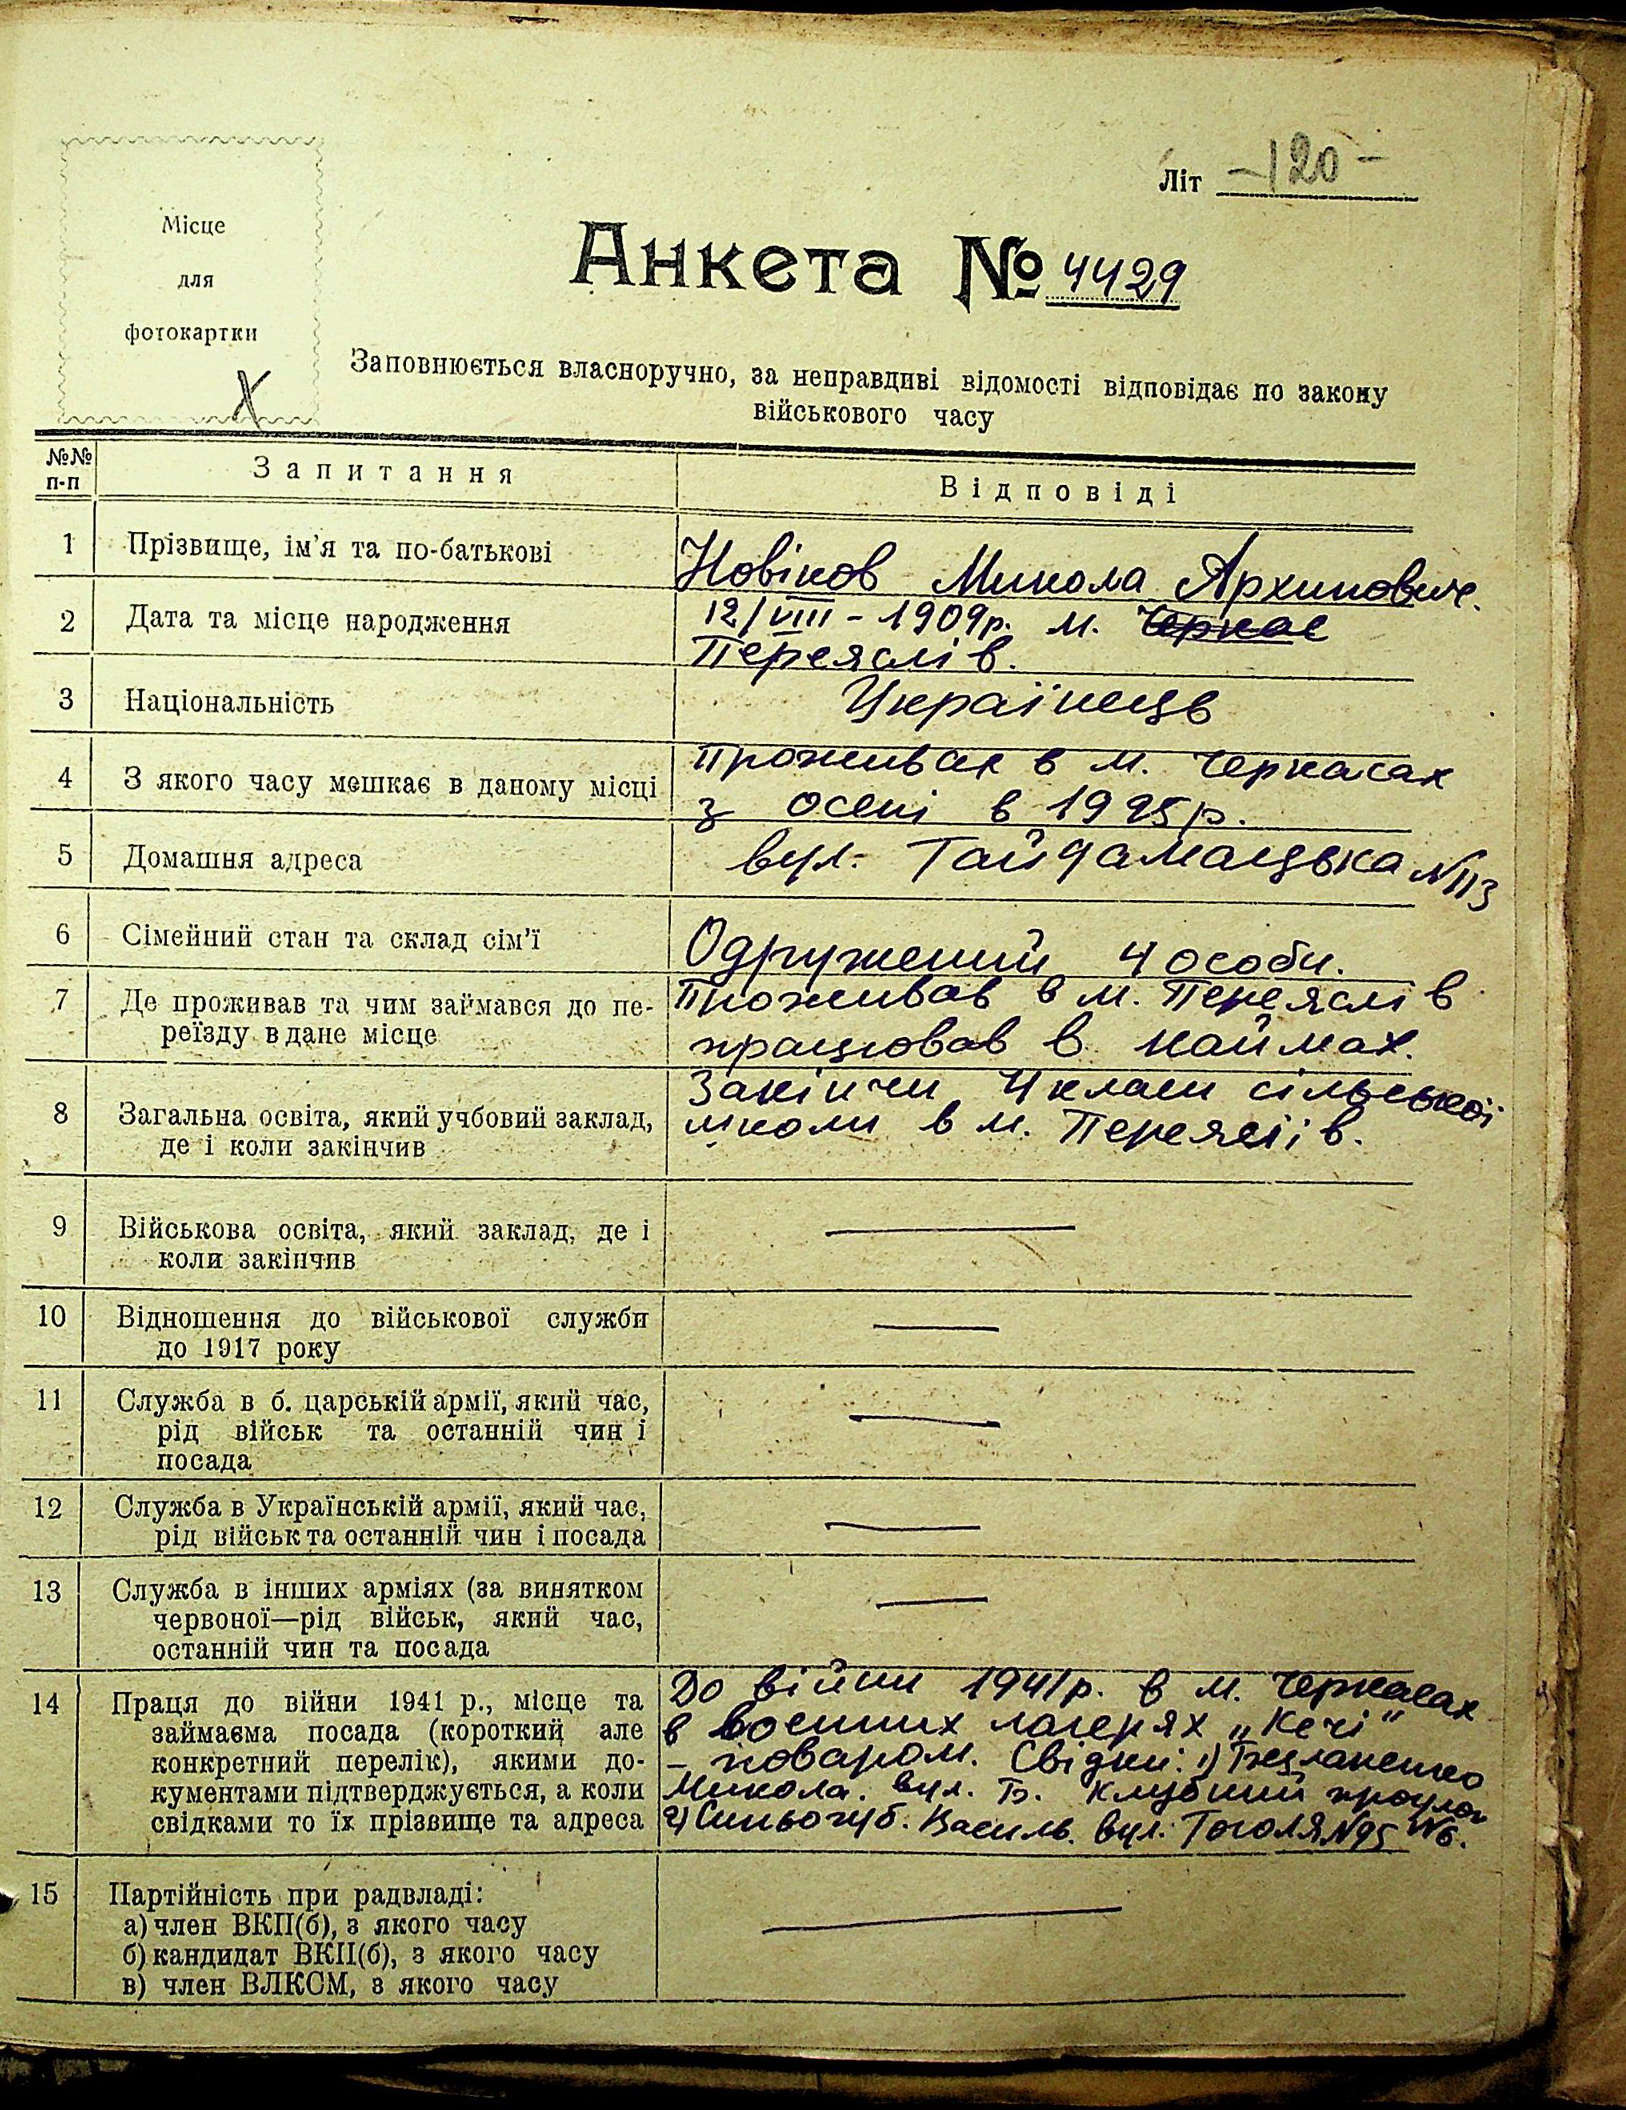 Літ -120-
Місце
для
фотокартки
Х
Анкета № 4429
Заповнюється власноручно, за неправдиві відомості відповідає по закону
військового часу
№№
п-п
Запитання
Відповіді
1
Прізвище, ім'я та по-батькові
Новіков Микола Архипович.
2
Дата та місце народження
12/VIII - 1909р. м. Черкас
Переяслів.
3
Національність
Українець
4
З якого часу мешкає в даному місці
Проживає в м. Черкасах
з осені в 1925р.
5
Домашня адреса
вул. Гайдамацька №113
6
Сімейний стан та склад сім'ї
Одружений 4 особи.
7
Де проживав та чим займався до пе-
реїзду в дане місце
Проживав в м. Переяслів
працював в наймах.
8
Загальна освіта, який учбовий заклад,
де і коли закінчив
Закінчи 4 класи сільської
школи в м. Переяслів.
9
Військова освіта, який заклад, де і
коли закінчив
10
Відношення до військової служби
до 1917 року
11
Служба в б. царській армії, який час,
рід військ та останній чин і
посада
12
Служба в Українській армії, який час,
рід військ та останній чин і посада
13
Служба в інших арміях (за винятком
червоної—рід військ, який час,
останній чин та посада
14
Праця до війни 1941 р., місце та
займаєма посада (короткий але
конкретний перелік), якими до-
кументами підтверджується, а коли
свідками то їх прізвище та адреса
До війни 1941р. в м. Черкасах
в воєнних лагерях „Кечі"
- поваром. Свідки: 1)
Микола. вул. Б.
2) Синьогуб. Василь. вул. Гоголя №95 №6.
15
Партійність при радвладі:
а) член ВКП(б), з якого часу
б) кандидат ВКП(б), з якого часу
в) член ВЛКСМ, з якого часу